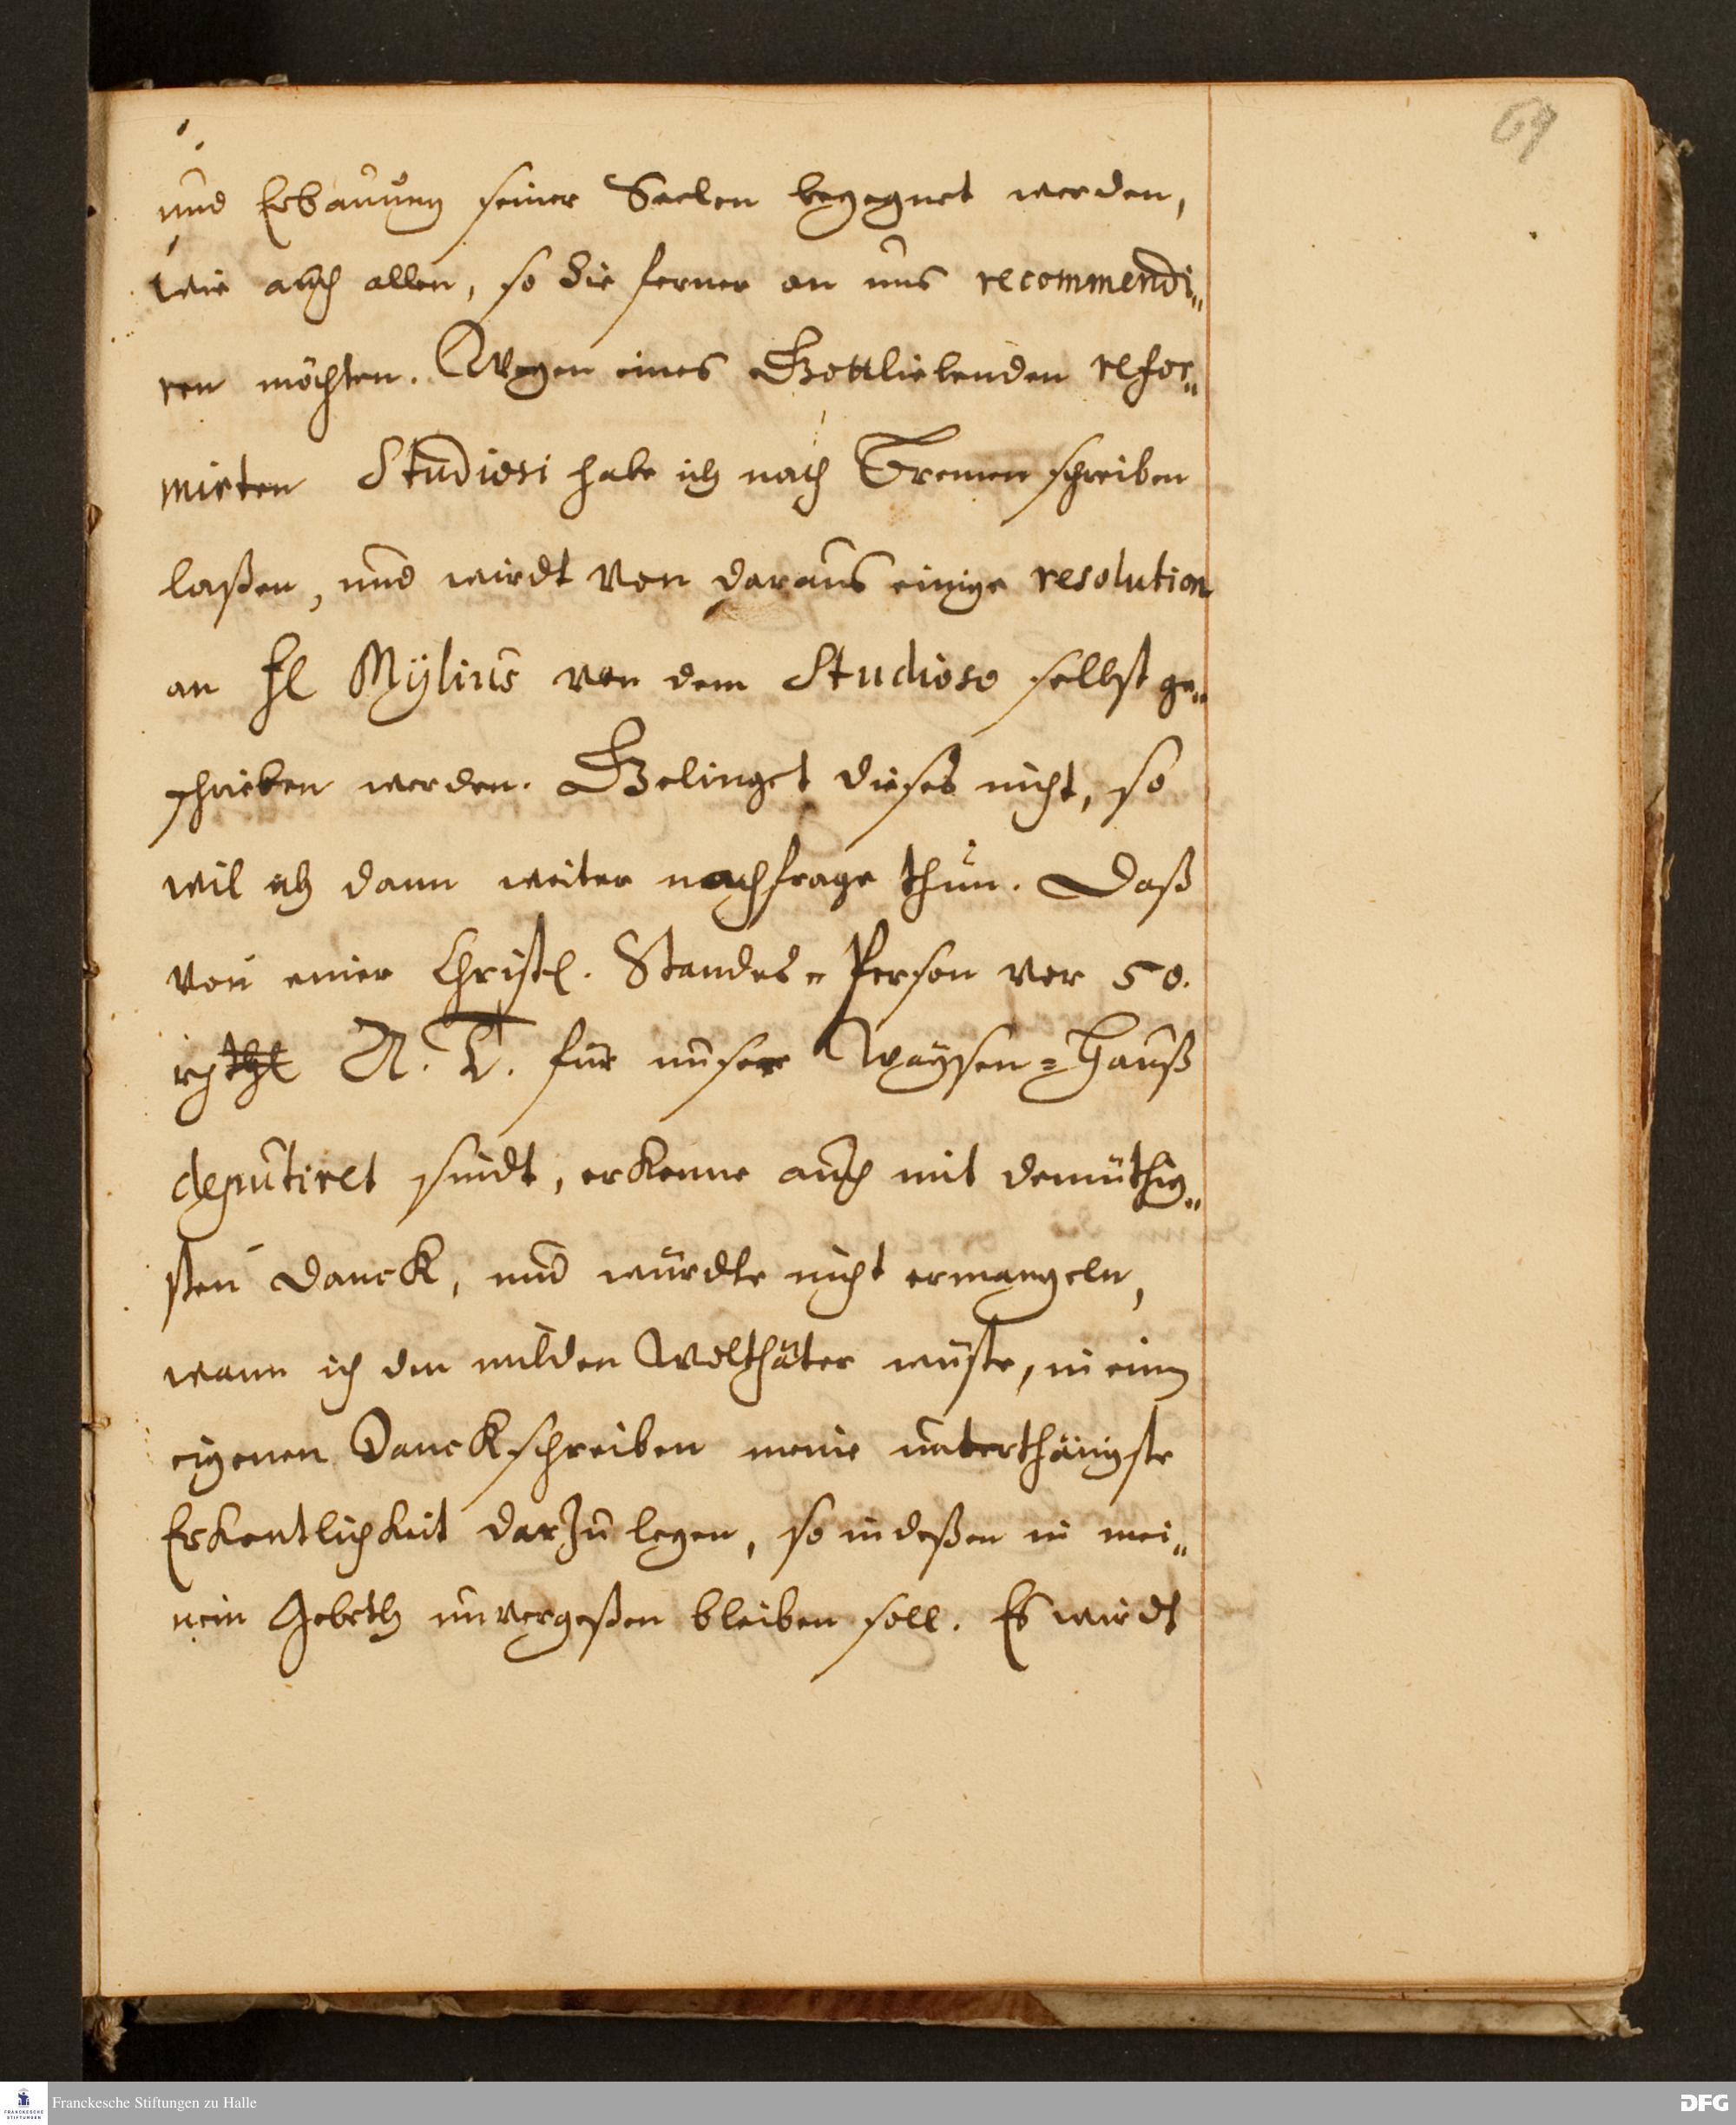 69
und Erbauung seiner Seelen begegnet werden,
wie auch allen, so die ferner an uns recommendi„
ren möchten. Wegen eines Gottliebenden refor„
mirten Studiosi habe ich nach Bremen schreiben
laßen, und wirdt von daraus einige resolution
an H Mÿlius von dem Studioso selbst ge„
schrieben werden. Gelinget dieses nicht, so
wil ich dann weiter nachfrage thun. Daß
von einer Christl. Standes-Person vor 50.
rthl A. T. für unser Waÿsen=Hauß
deputiret sindt, erkenne auch mit demüthig„
sten Danck, und würdte nicht ermangeln,
wann ich den milden Wolthäter wüste, in einem
eigenen Danckschreiben meine unterthänigste
Erkentlichkeit darzu legen, so indeßen in mei„
nem Gebeth unvergeßen bleiben soll. Es wirdt
Franckesche Stiftungen zu Halle
FRANCKESCHE
STIFTUNGEN
DFG